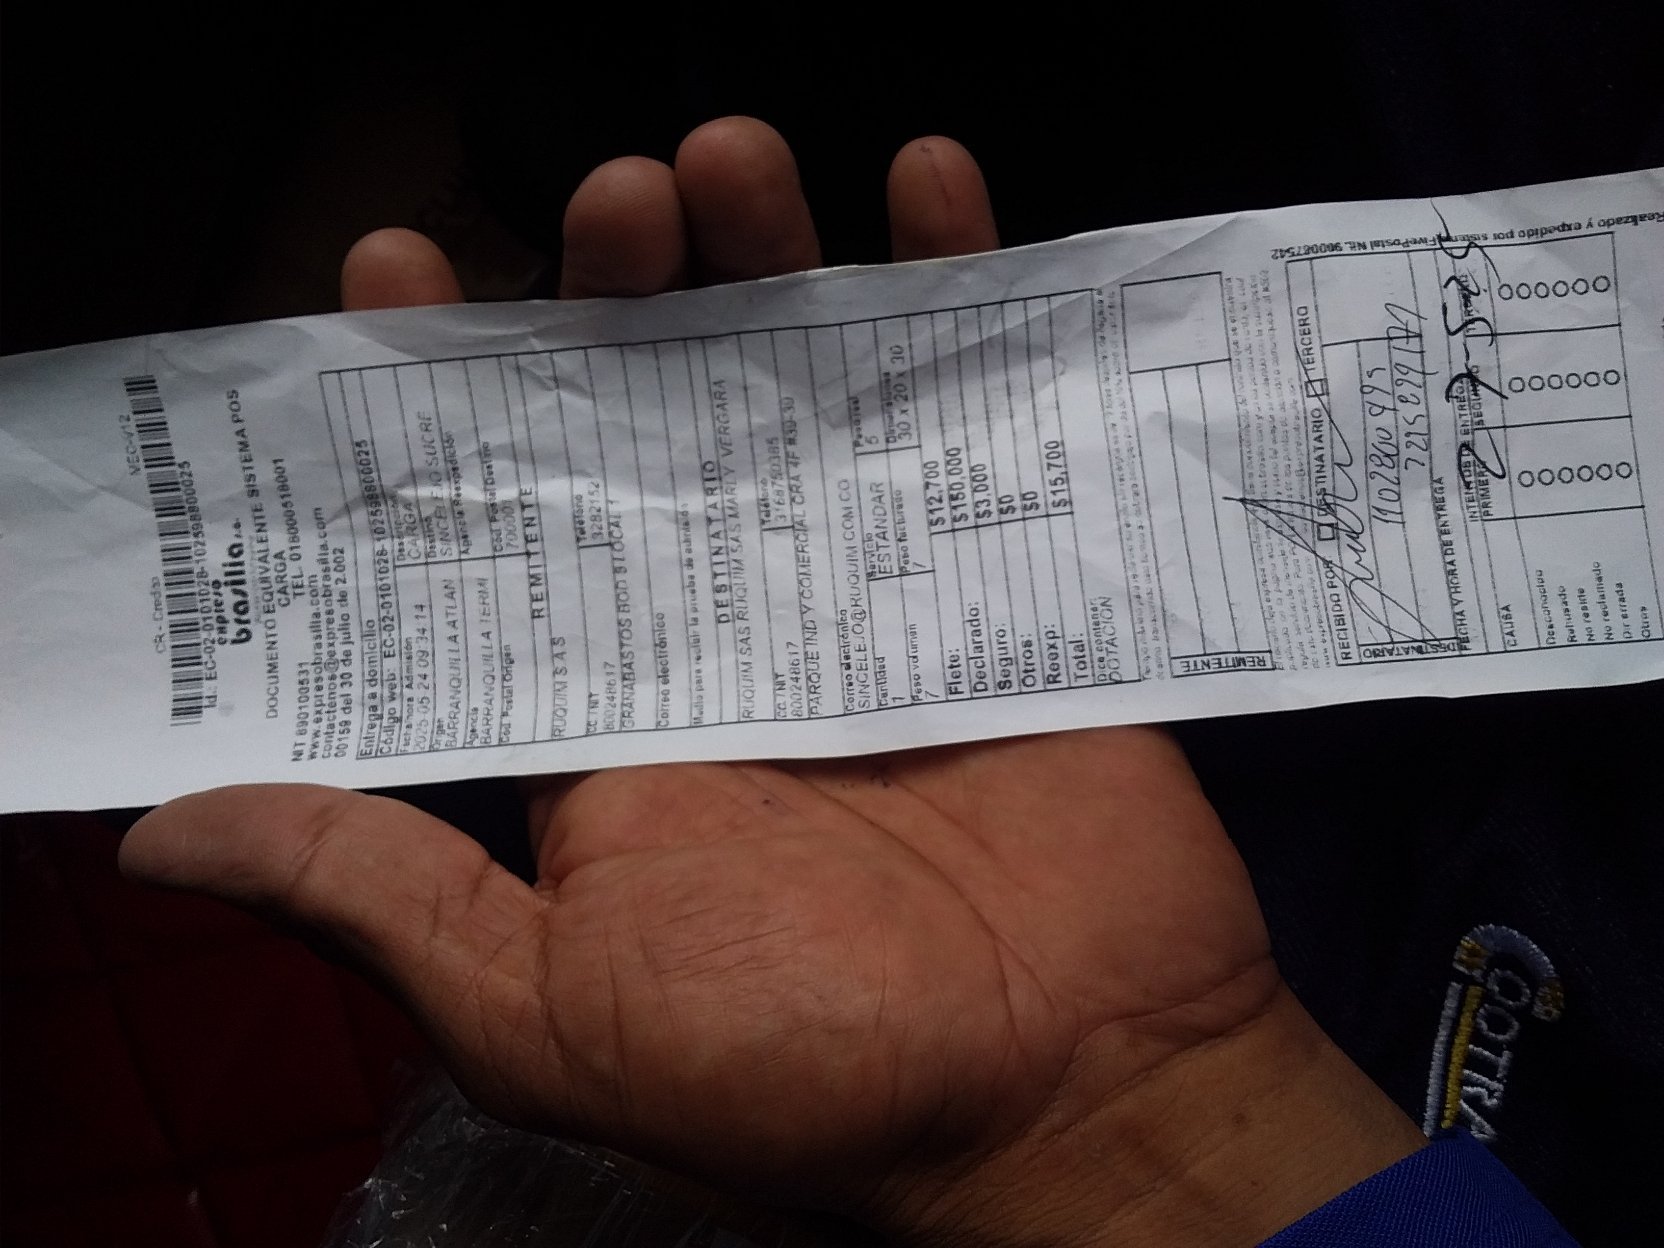 CR - Credito
VEC-V12
Id.: EC-02-0101028-1025988800025
expreso
brasilia s.a.
DOCUMENTO EQUIVALENTE SISTEMA POS
CARGA
NIT 890100531 TEL. 018000518001
www.expresobrasilia.com
contactenos@expresobrasilia.com
00159 del 30 de julio de 2.002
Entrega a domicilio
Código web: EC-02-0101028-1025988800025
Fecha hora Admisión
2025 05 24 09 34 14
CARGA
Origen Destino
BARRANQUILLA ATLAN SINCELEJO SUCRE
Agencia Agencia Reexpedición
BARRANQUILLA TERMI
Cód Postal Origen Cód Postal Destino
REMITENTE
RUQUIM S A S
CC.TNIT Teléfono
800248617 3282152
GRANABASTOS BOD 9 LOCAL 1
Correo electrónico
Medio para recibir la prueba de entrega
DESTINATARIO
RUQUIM SAS RUQUIM SAS MARLY VERGARA
CC.TNIT Teléfono
800248617
PARQUE IND Y COMERCIAL CRA 4F #39-30
Correo electrónico
SINCELEJO@RUQUIM.COM.CO
Cantidad Servicio Peso real Dimensiones
1 ESTANDAR 5 30 x 20 x 30
Peso volumen Peso facturado
7 7
Flete: $12,700
Declarado: $150,000
Seguro: $3,000
Otros: $0
Reexp: $0
Total: $15,700
Dice contener:
DOTACION
REMITENTE
RECIBIDO POR DESTINATARIO TERCERO
1102800495
DESTINATARIO
FECHA Y HORA DE ENTREGA
27-5-25
INTENTOS DE ENTREGA
CAUSA PRIMERO SEGUNDO TERCERO
Desconocido
Rehusado
No reside
No reclamado
Dir errada
Otros
Realizado y expedido por sistema FivePostal Nit. 900087542
COOTRA